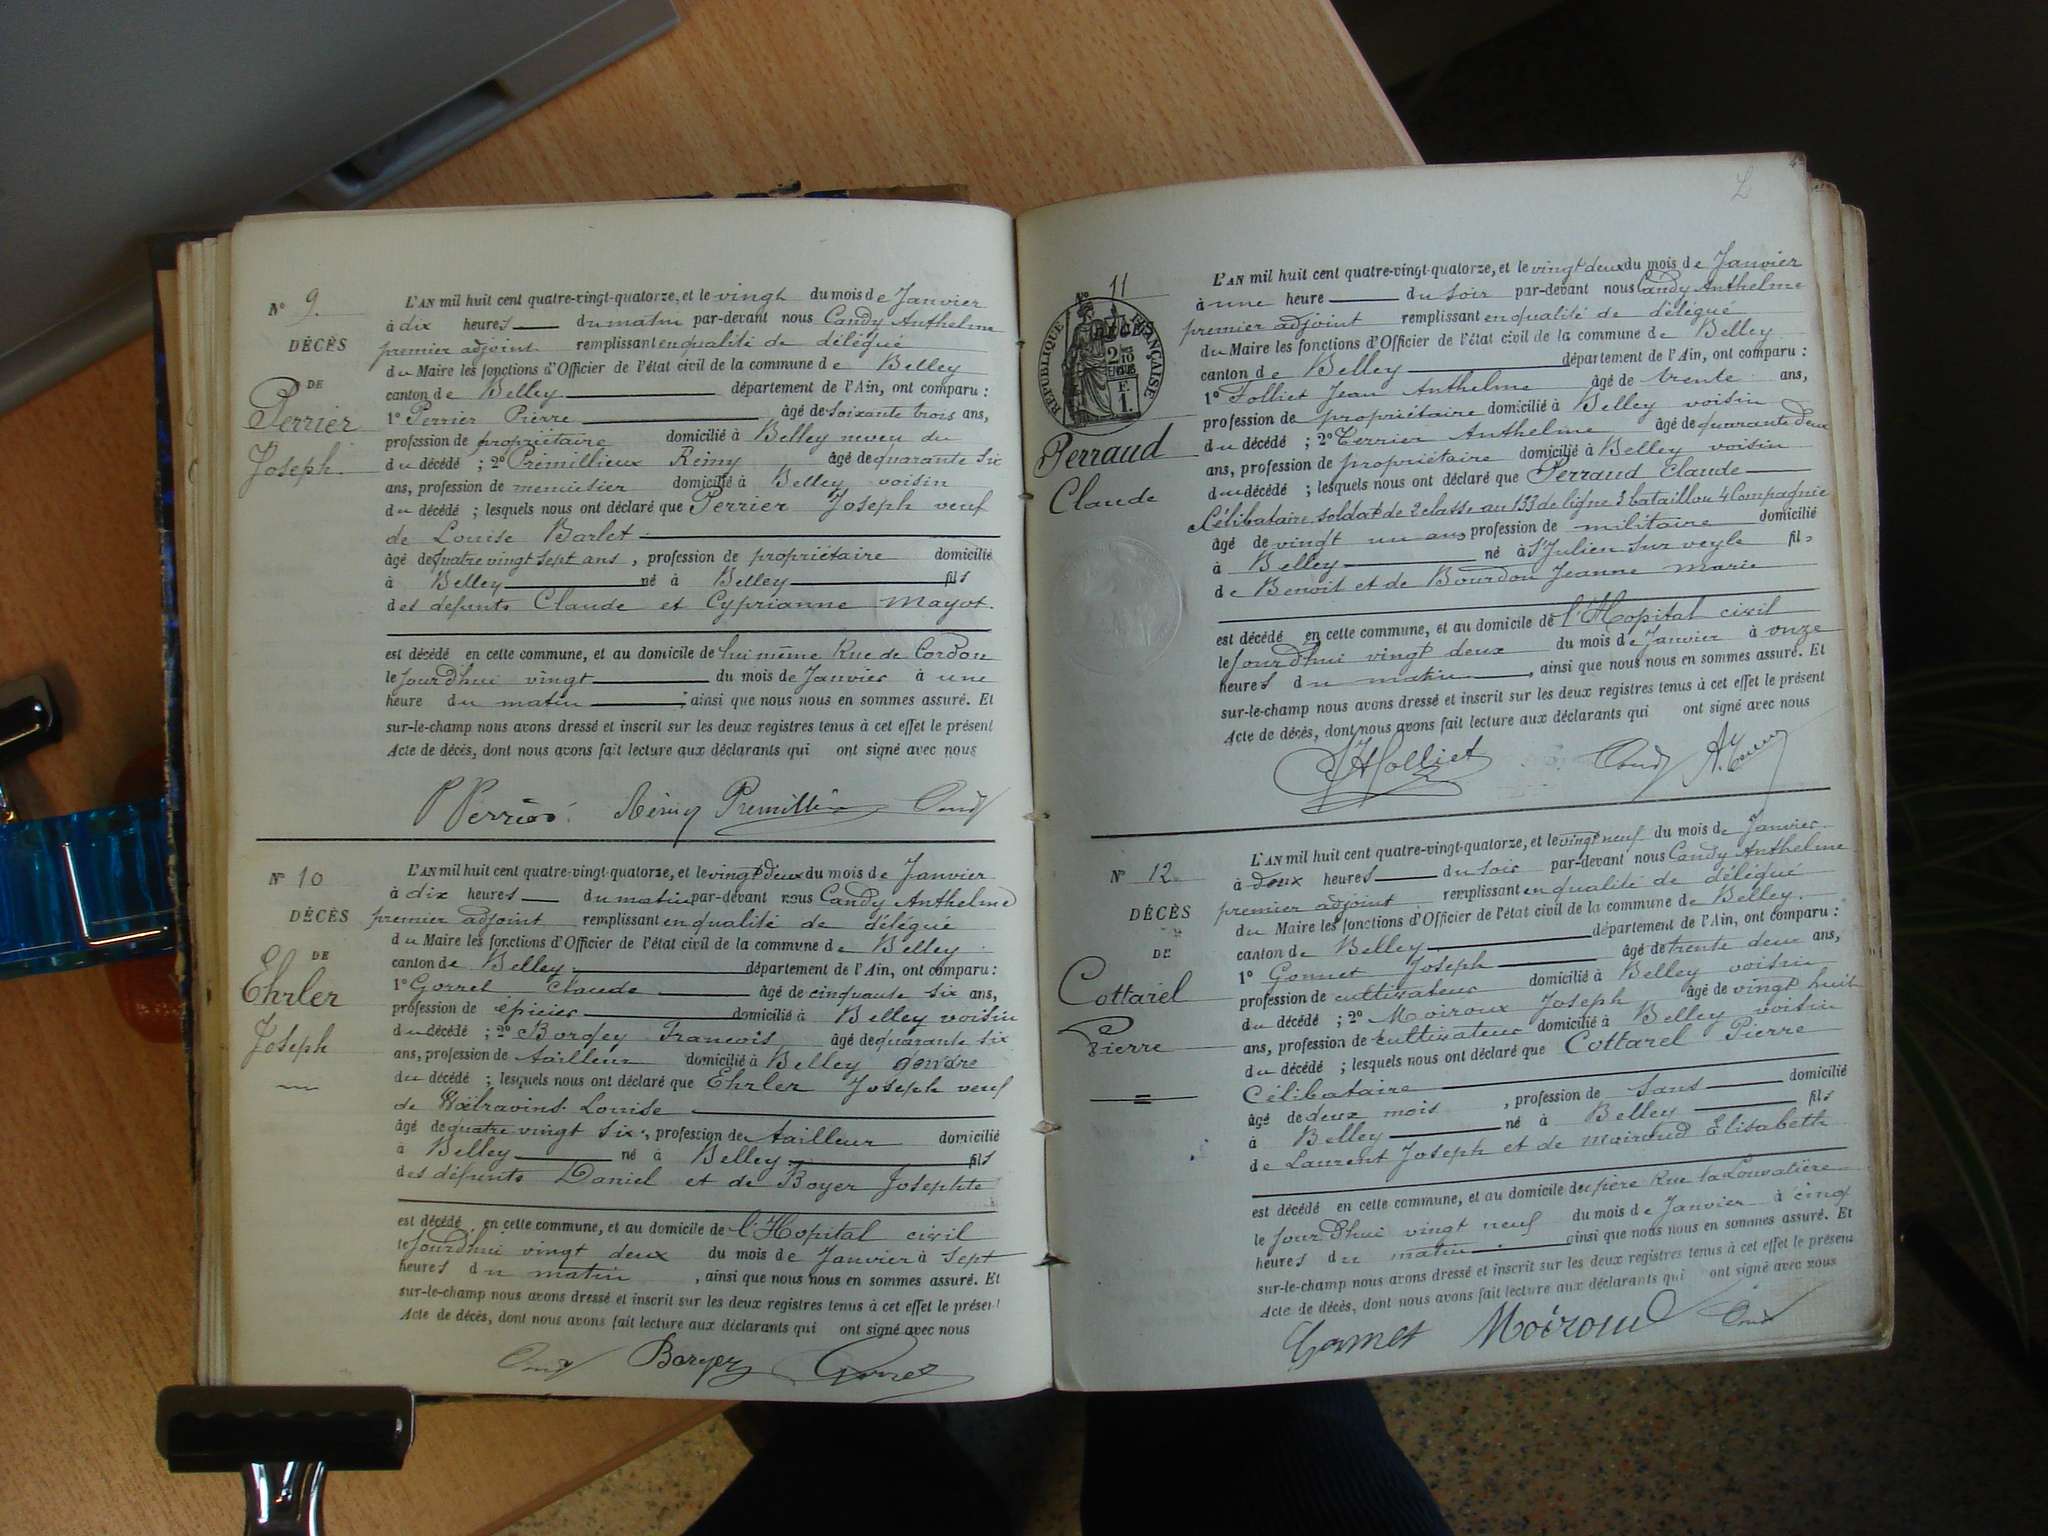 N° 9.
DÉCÈS
DE
Perrier
Joseph.
L'AN mil huit cent quatre-vingt-quatorze, et le vingt du mois de Janvier
à dix heures du matin par-devant nous Candy Anthelme
premier adjoint remplissant en qualité de délégué
du Maire les fonctions d'Officier de l'état civil de la commune de Belley
canton de Belley département de l'Ain, ont comparu :
1° Perrier Pierre, âgé de soixante trois ans,
profession de propriétaire domicilié à Belley neveu du
du décédé ; 2° Prémillieux Rémy âgé de quarante six
ans, profession de menuisier domicilié à Belley voisin
du décédé ; lesquels nous ont déclaré que Perrier Joseph veuf
de Louise Barlet.
âgé de quatre vingt sept ans, profession de propriétaire domicilié
à Belley né à Belley fils
des défunts Claude et Cyprianne Mayot.
est décédé en cette commune, et au domicile de lui même Rue de Cordon
le jourd'hui vingt du mois de Janvier à une
heure du matin ; ainsi que nous nous en sommes assuré. Et
sur-le-champ nous avons dressé et inscrit sur les deux registres tenus à cet effet le présent
Acte de décès, dont nous avons fait lecture aux déclarants qui ont signé avec nous
P Perrier Rémy Premillieu Candy
N° 10
DÉCÈS
DE
Ehrler
Joseph
L'AN mil huit cent quatre-vingt-quatorze, et le vingt deux du mois de Janvier
à dix heures du matin par-devant nous Candy Anthelme
premier adjoint remplissant en qualité de délégué
du Maire les fonctions d'Officier de l'état civil de la commune de Belley
canton de Belley département de l'Ain, ont comparu :
1° Gorrel Claude âgé de cinquante six ans,
profession de épicier domicilié à Belley voisin
du décédé ; 2° Borgey François, âgé de quarante six
ans, profession de tailleur domicilié à Belley gendre
du décédé ; lesquels nous ont déclaré que Ehrler Joseph veuf
de Louise
âgé de quatre vingt six, profession de tailleur domicilié
à Belley né à Belley fils
des défunts Daniel et de Boyer Josephte
est décédé en cette commune, et au domicile de l'Hopital civil
le jourd'hui vingt deux du mois de Janvier à sept
heures du matin, ainsi que nous nous en sommes assuré. Et
sur-le-champ nous avons dressé et inscrit sur les deux registres tenus à cet effet le présent
Acte de décès, dont nous avons fait lecture aux déclarants qui ont signé avec nous
Candy Borgey Gorrel
N° 11
DÉCÈS
RÉPUBLIQUE FRANÇAISE
Perraud
Claude
L'AN mil huit cent quatre-vingt-quatorze, et le vingt deux du mois de Janvier
à une heure du soir par-devant nous Candy Anthelme
premier adjoint remplissant en qualité de délégué
du Maire les fonctions d'Officier de l'état civil de la commune de Belley
canton de Belley département de l'Ain, ont comparu :
1° Folliet Jean Anthelme âgé de trente ans,
profession de propriétaire domicilié à Belley voisin
du décédé ; 2° Terrier Anthelme âgé de quarante deux
ans, profession de propriétaire domicilié à Belley voisin
du décédé ; lesquels nous ont déclaré que Perraud Claude
Célibataire soldat de 2 classe au 133 de ligne 3 bataillon 4 Compagnie
âgé de vingt un ans profession de militaire domicilié
à Belley né à St Julien sur veyle fils
de Benoit et de Bourdon Jeanne Marie
est décédé en cette commune, et au domicile de l'Hopital civil
le jourd'hui vingt deux du mois de Janvier à onze
heures du matin, ainsi que nous nous en sommes assuré. Et
sur-le-champ nous avons dressé et inscrit sur les deux registres tenus à cet effet le présent
Acte de décès, dont nous avons fait lecture aux déclarants qui ont signé avec nous
JA Folliet Candy A. Terrier
N° 12
DÉCÈS
DE
Cottarel
Pierre
L'AN mil huit cent quatre-vingt-quatorze, et le vingt neuf du mois de Janvier
à deux heures du soir par-devant nous Candy Anthelme
premier adjoint remplissant en qualité de délégué
du Maire les fonctions d'Officier de l'état civil de la commune de Belley.
canton de Belley département de l'Ain, ont comparu :
1° Gonnet Joseph âgé de trente deux ans,
profession de cultivateur domicilié à Belley voisin
du décédé ; 2° Moiroux Joseph âgé de vingt huit
ans, profession de cultivateur domicilié à Belley voisin
du décédé ; lesquels nous ont déclaré que Cottarel Pierre
Célibataire
âgé de deux mois, profession de sans domicilié
à Belley né à Belley fils
de Laurent Joseph et de Moiroud Elisabeth
est décédé en cette commune, et au domicile de père Rue la Louvatière
le jourd'hui vingt neuf du mois de Janvier à cinq
heures du matin. ainsi que nous nous en sommes assuré. Et
sur-le-champ nous avons dressé et inscrit sur les deux registres tenus à cet effet le présent
Acte de décès, dont nous avons fait lecture aux déclarants qui ont signé avec nous
Gonnet Moiroud Candy